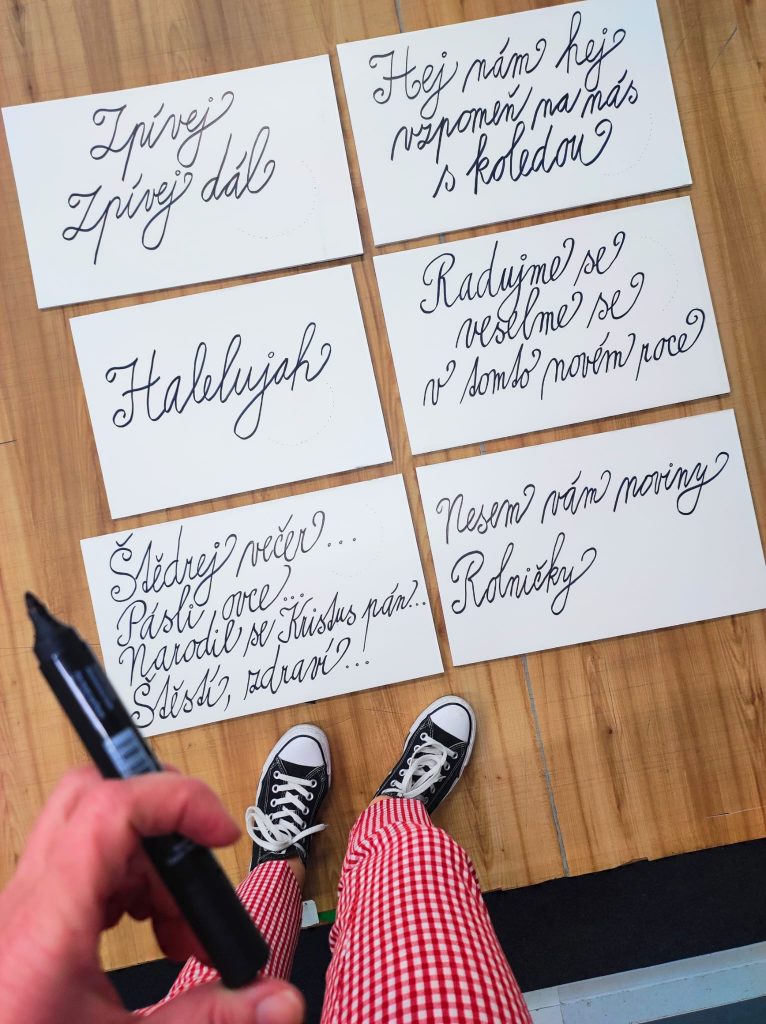 Zpívej
Zpívej dál
Hej nám hej
vzpomeň na nás
s koledou
Halelujah
Radujme se
veselme se
v tomto novém roce
Štědrej večer...
Pásli ovce...
Narodil se Kristus pán...
Štěstí, zdraví...
Nesem vám noviny
Rolničky